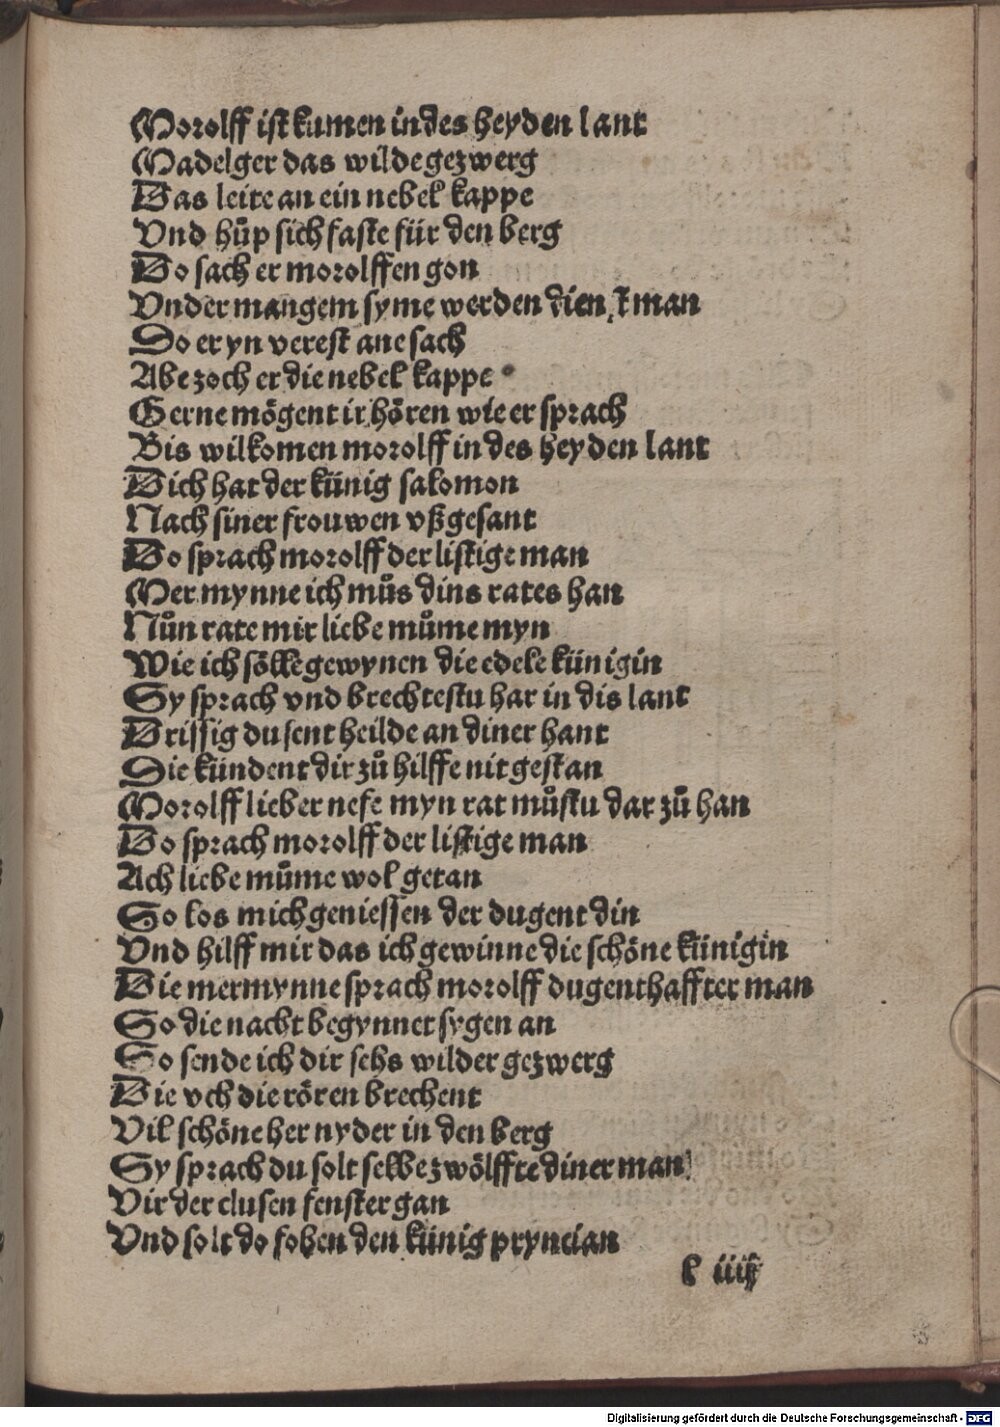 Morolff ist kumen in des heyden lant
Madelger das wilde gezwerg
Das leite an ein nebel kappe
Vnd hůp sich faste für den berg
Do sach er morolffen gon
Vnder mangem syme werden dienst man
Do er yn verest ane sach
Abe zoch er die nebel kappe
Gerne mögent ir hören wie er sprach
Bis wilkomen morolff in des heyden lant
Dich hat der künig salomon
Nach siner frouwen vßgesant
Do sprach morolff der listige man
Mer mynne ich můs dins rates han
Nůn rate mir liebe můme myn
Wie ich sölle gewynen die edele künigin
Sy sprach vnd brechtestu har in dis lant
Drissig dusent heilde an diner hant
Die kündent dir zů hilffe nit gestan
Morolff lieber nefe myn rat můstu dar zů han
Do sprach morolff der listige man
Ach liebe můme wol getan
So los mich geniessen der dugent din
Vnd hilff mir das ich gewinne die schöne künigin
Die mermynne sprach morolff dugenthaffter man
So die nacht begynnet sygen an
So sende ich dir sehs wilder gezwerg
Die vch die rören brechent
Vil schöne her nyder in den berg
Sy sprach du solt selbe zwölffte diner man
Vir der clusen fenster gan
Vnd solt do fohen den künig pryncian
l iiij
Digitalisierung gefördert durch die Deutsche Forschungsgemeinschaft - DFG